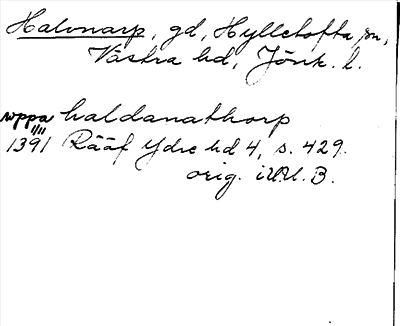 Halvnarp, gd, Hylletofta sn,
Västra hd, Jönk. l.
uppa haldanathorp
1/11
1391 Rääf Ydre hd 4, s. 429.
orig. i UU. B.